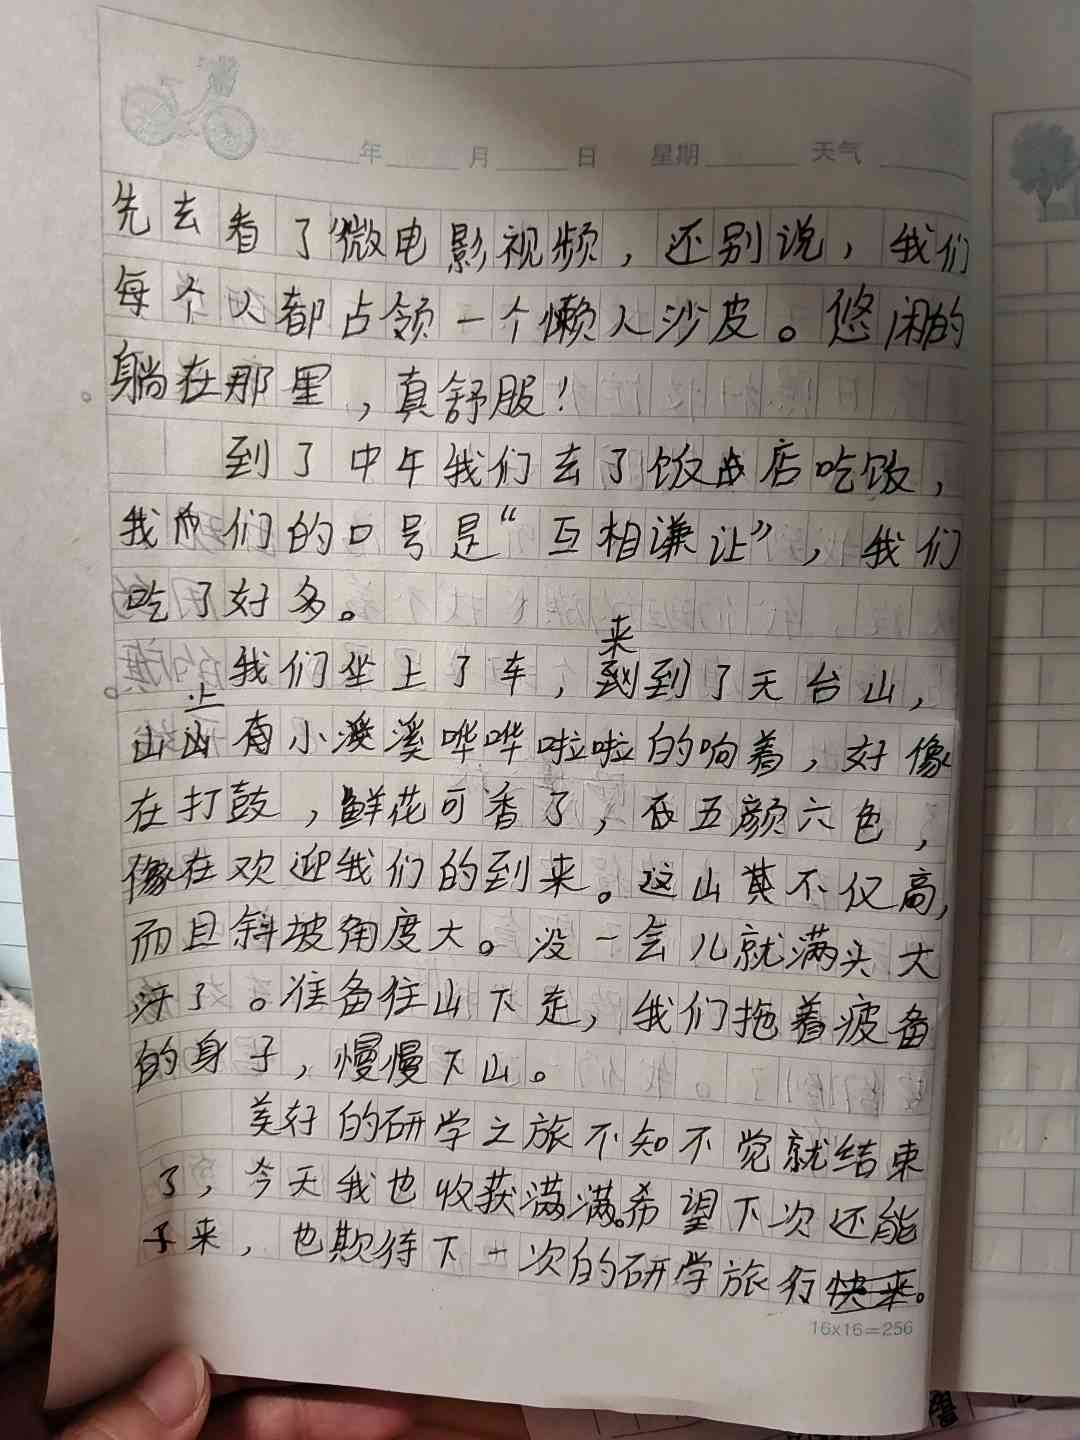 年 月 日 星期 天气
先去看了微电影视频，还别说，我们
每个人都占领一个懒人沙皮。悠闲的
躺在那里，真舒服！
到了中午我们去了饭店吃饭，
我们的口号是“互相谦让”，我们
吃了好多。
我们坐上了车，来到了天台山，
山上有小溪哗哗啦啦的响着，好像
在打鼓，鲜花可香了，五颜六色，
像在欢迎我们的到来。这山不仅高，
而且斜坡角度大。没一会儿就满头大
汗了。准备往山下走，我们拖着疲备
的身子，慢慢下山。
美好的研学之旅不知不觉就结束
了，今天我也收获满满。希望下次还能
来，也欺待下一次的研学旅行。
16x16=256